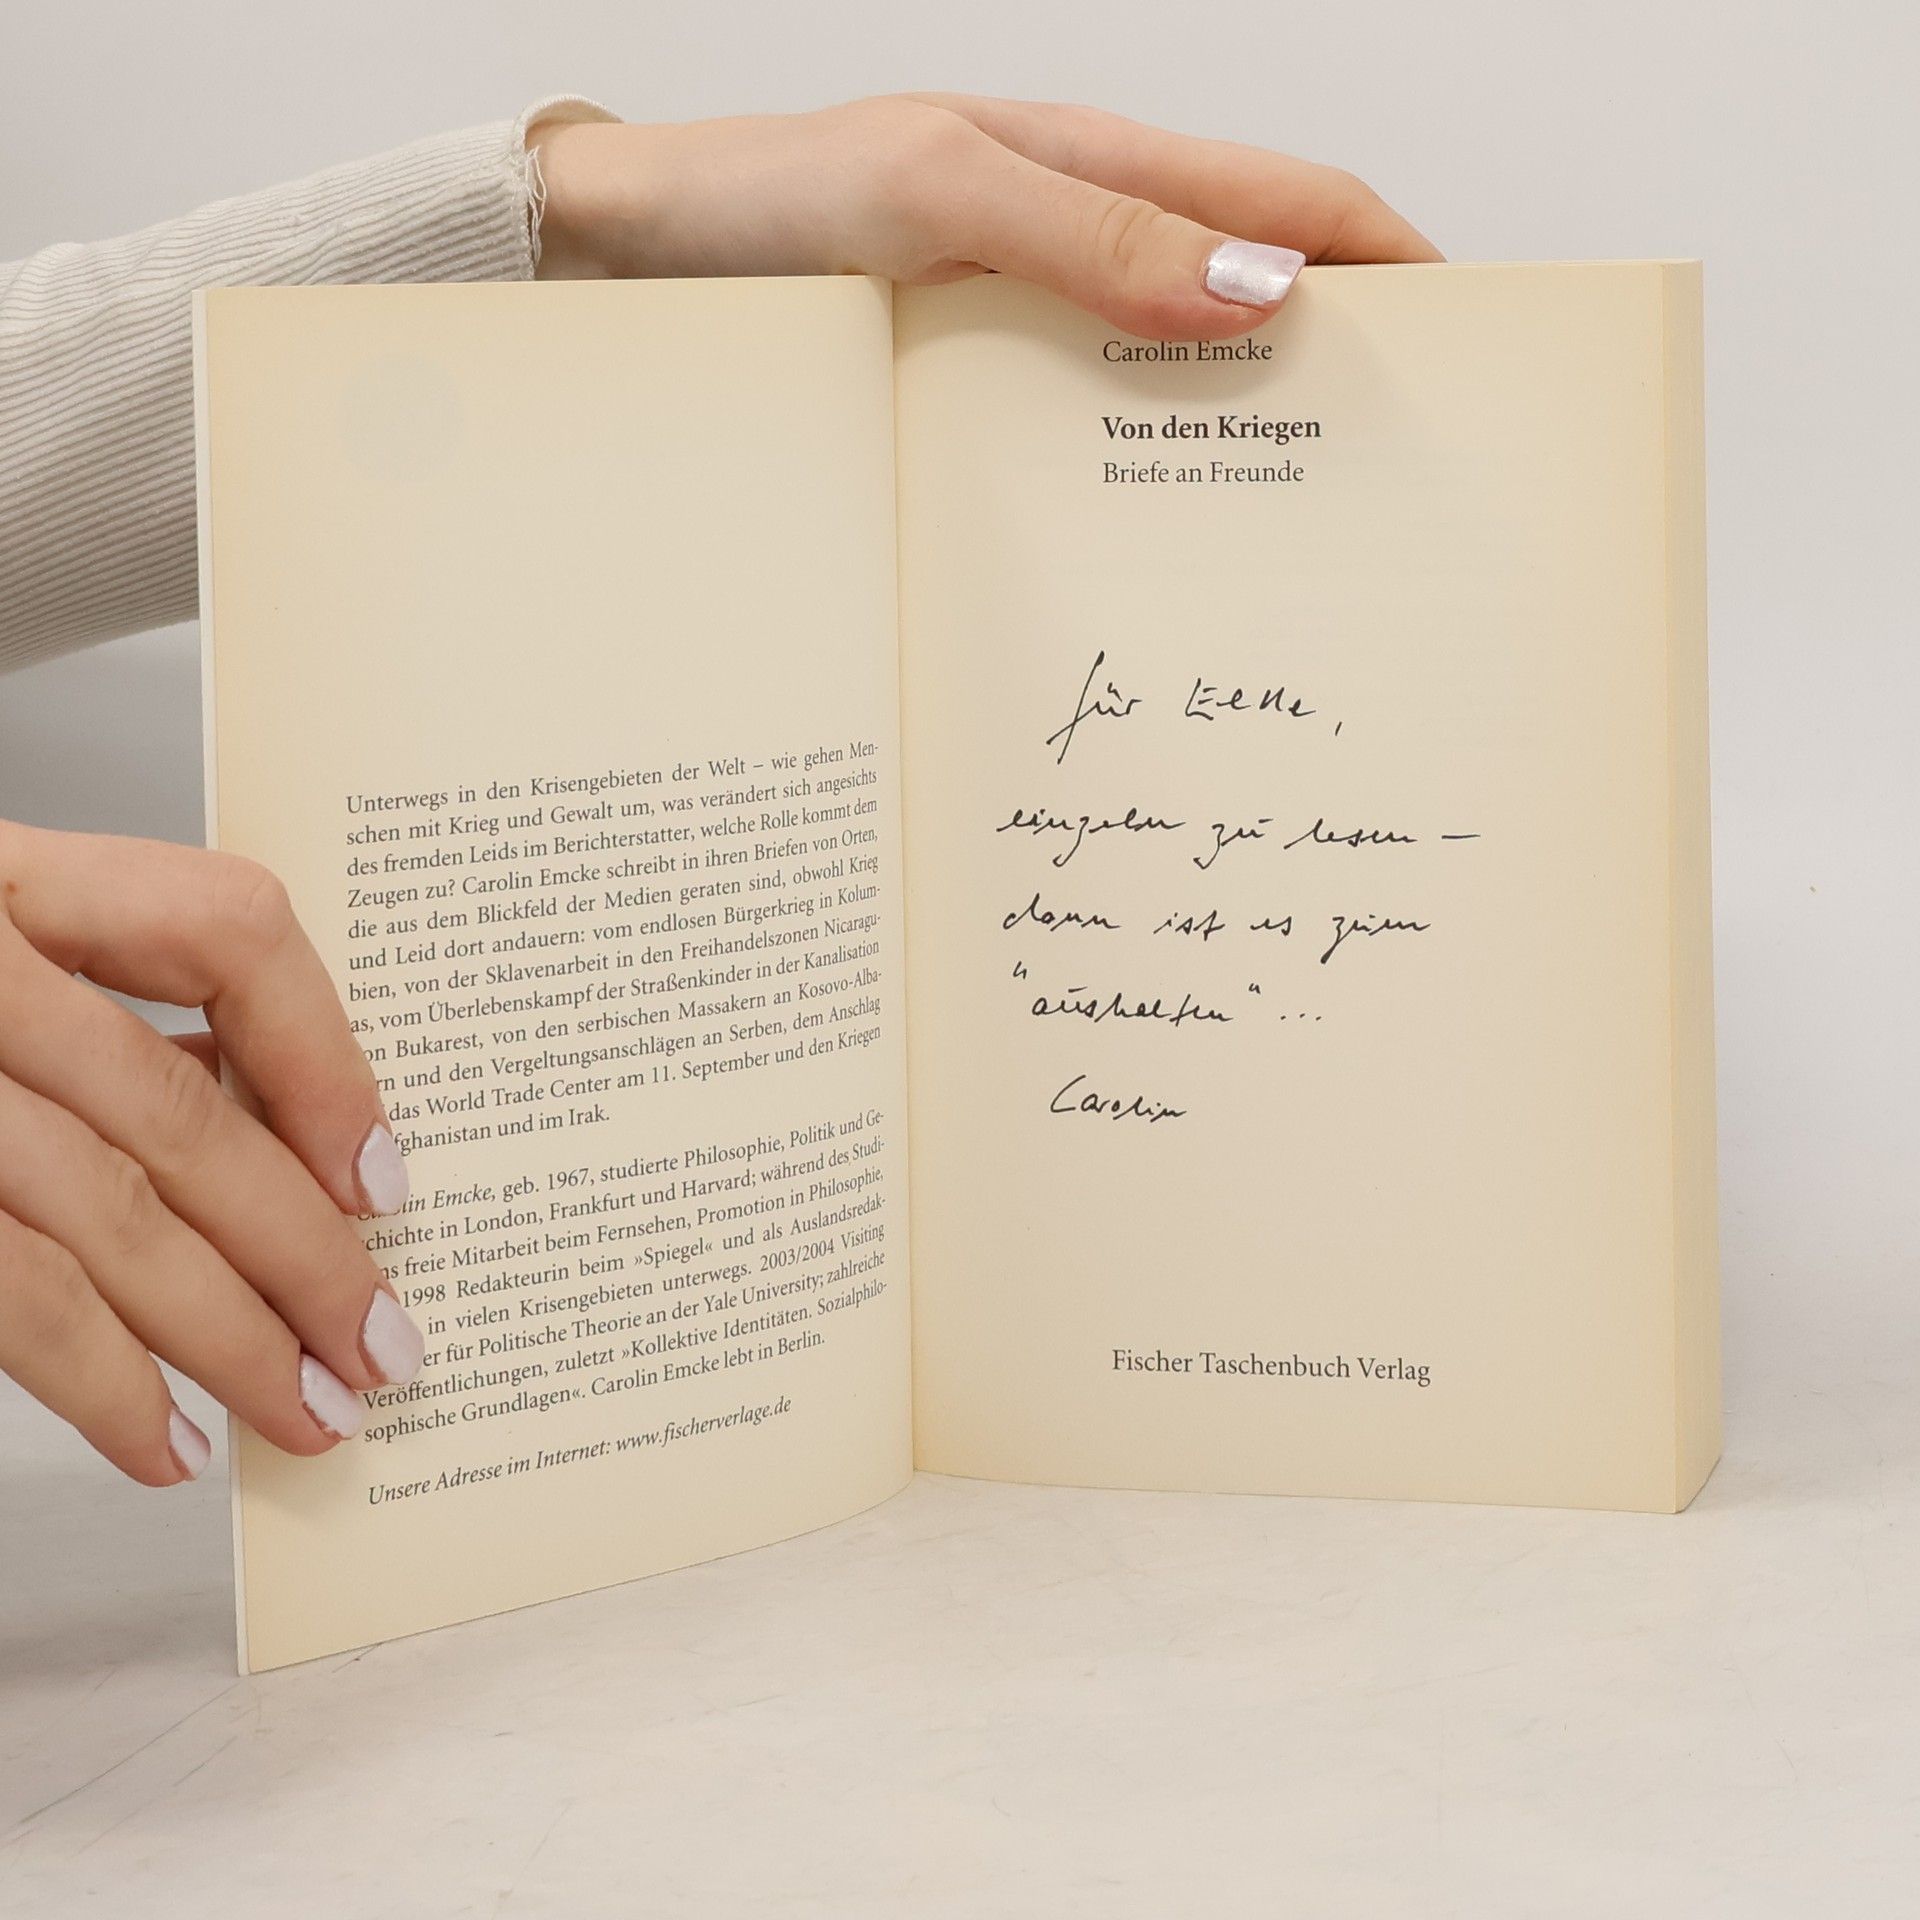 Unterwegs in den Krisengebieten der Welt – wie gehen Men-
schen mit Krieg und Gewalt um, was verändert sich angesichts
des fremden Leids im Berichterstatter, welche Rolle kommt dem
Zeugen zu? Carolin Emcke schreibt in ihren Briefen von Orten,
die aus dem Blickfeld der Medien geraten sind, obwohl Krieg
und Leid dort andauern: vom endlosen Bürgerkrieg in Kolum-
bien, von der Sklavenarbeit in den Freihandelszonen Nicaragu-
as, vom Überlebenskampf der Straßenkinder in der Kanalisation
on Bukarest, von den serbischen Massakern an Kosovo-Alba-
rn und den Vergeltungsanschlägen an Serben, dem Anschlag
das World Trade Center am 11. September und den Kriegen
fghanistan und im Irak.
lin Emcke, geb. 1967, studierte Philosophie, Politik und Ge-
chichte in London, Frankfurt und Harvard; während des Studi-
ns freie Mitarbeit beim Fernsehen, Promotion in Philosophie,
1998 Redakteurin beim »Spiegel« und als Auslandsredak-
in vielen Krisengebieten unterwegs. 2003/2004 Visiting
er für Politische Theorie an der Yale University; zahlreiche
Veröffentlichungen, zuletzt »Kollektive Identitäten. Sozialphilo-
sophische Grundlagen«. Carolin Emcke lebt in Berlin.
Unsere Adresse im Internet: www.fischerverlage.de
Carolin Emcke
Von den Kriegen
Briefe an Freunde
für
einzeln zu lesen –
dann ist es zum
"aushalten" ...
Carolin
Fischer Taschenbuch Verlag